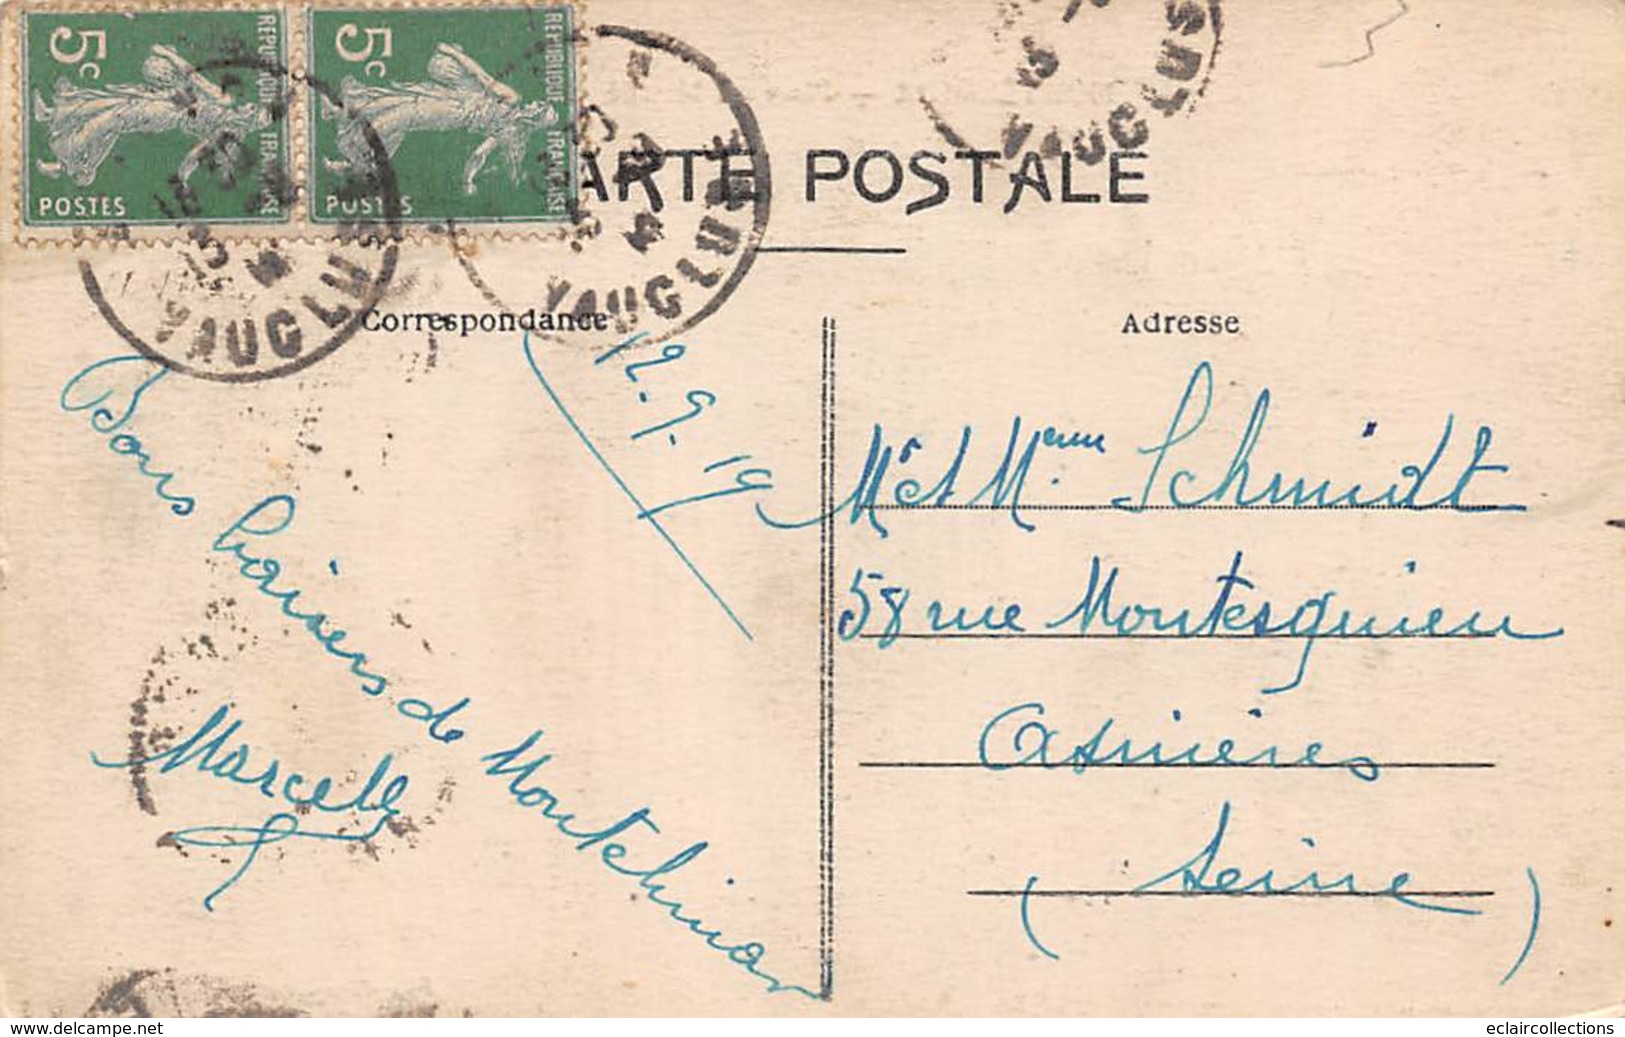 5c
REPUBLIQUE FRANÇAISE
POSTES
5c
REPUBLIQUE FRANÇAISE
POSTES
VAUCLUSE
VAUCLUSE
VAUCLUSE
CARTE POSTALE
Correspondance
Adresse
12.9.19
Bons baisers de Montchinon
Marcelly
Mr et Mme Schmidt
58 rue Montesquieu
Asnières
(Seine)
www.delcampe.net
eclaircollections